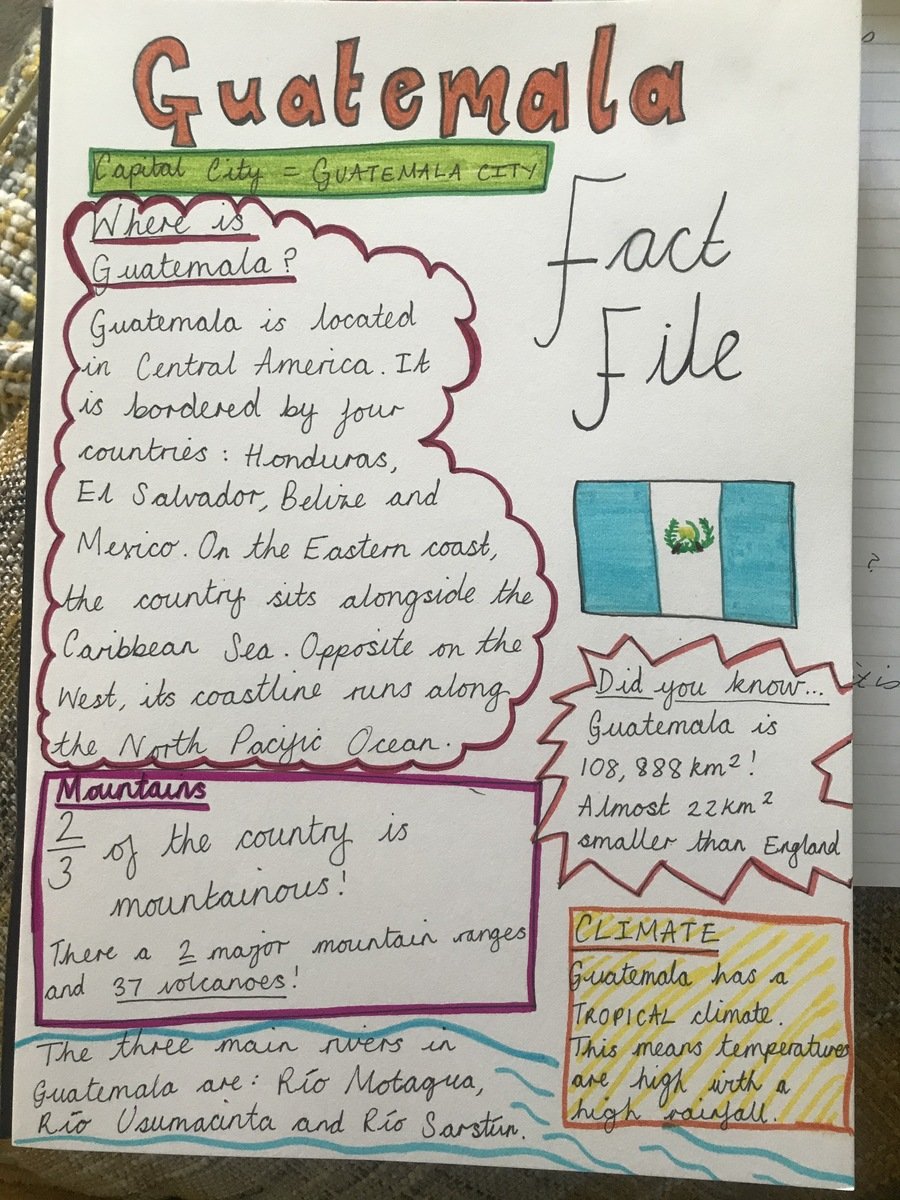 Guatemala
Capital City = GUATEMALA CITY
Fact
File
Where is
Guatemala?
Guatemala is located
in Central America. It
is bordered by four
countries: Honduras,
El Salvador, Belize and
Mexico. On the Eastern coast,
the country sits alongside the
Caribbean Sea. Opposite on the
West, its coastline runs along
the North Pacific Ocean.
Did you know...
Guatemala is
108,888km²!
Almost 22km²
smaller than England
Mountains
2/3 of the country is
mountainous!
There a 2 major mountain ranges
and 37 volcanoes!
CLIMATE
Guatemala has a
TROPICAL climate.
This means temperatures
are high with a
high rainfall.
The three main rivers in
Guatemala are: Río Motagua,
Río Usumacinta and Río Sarstún.